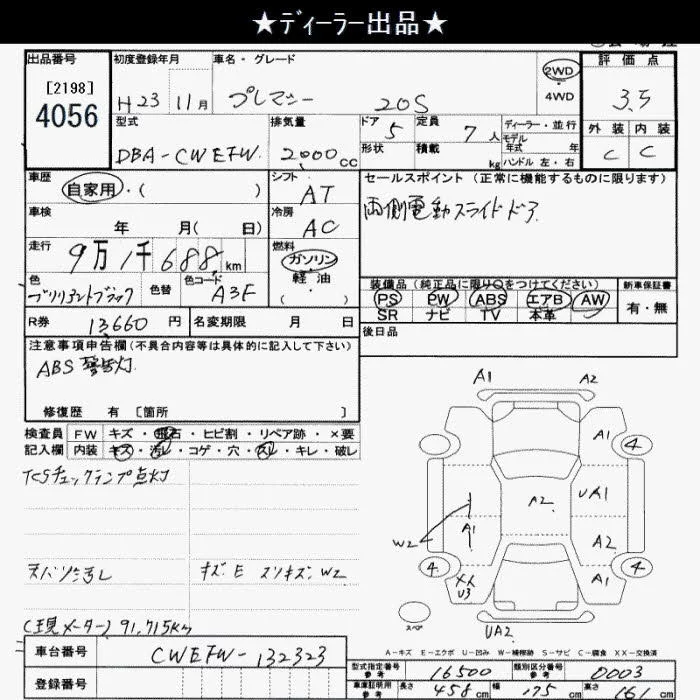 ★ディーラー出品★
出品番号 初度登録年月 車名・グレード 評価点
[2198]
4056
H23 11月 プレマシー 20S 2WD・4WD 3.5
型式 排気量 ドア 5 定員 7人 ディーラー・並行 外装 内装
DBA-CWEFW 2000cc 形状 積載 kg モデル年式 年 ハンドル 左・右 C C
車歴 自家用・( ) シフト AT セールスポイント (正常に機能するものに限ります)
車検 年 月( 日) 冷房 AC 両側電動スライドドア
走行 9万1千688km 燃料 ガソリン・軽油・( )
色 ブリリアントブラック 色替 色コード A3F 装備品 (純正品に限り○をつけてください) 新車保証書
PS PW ABS エアB AW 有・無
SR ナビ TV 本革
R券 13660円 名変期限 月 日 後日品
注意事項申告欄(不具合内容等は具体的に記入して下さい)
ABS 警告灯
修復歴 有 [箇所 ]
検査員 FW キズ・飛石・ヒビ割・リペア跡・×要
記入欄 内装 キズ・汚レ・コゲ・穴・スレ・キレ・破レ
TCSチェックランプ点灯
天バリ汚レ キズ.E スリキズ.W2
(現メーター) 91,715km
A1 A2
A1 4
A1 A2 UA1
W2 A2
4 XX U3 A1 4
スペア UA2
A-キズ E-エクボ U-凹み W-補修跡 S-サビ C-腐食 XX-交換済
車台番号 CWEFW-132323
登録番号
型式指定番号 参考 16500 類別区分番号 参考 0003
車庫証明用 参考 長さ 458cm 幅 175cm 高さ 161cm